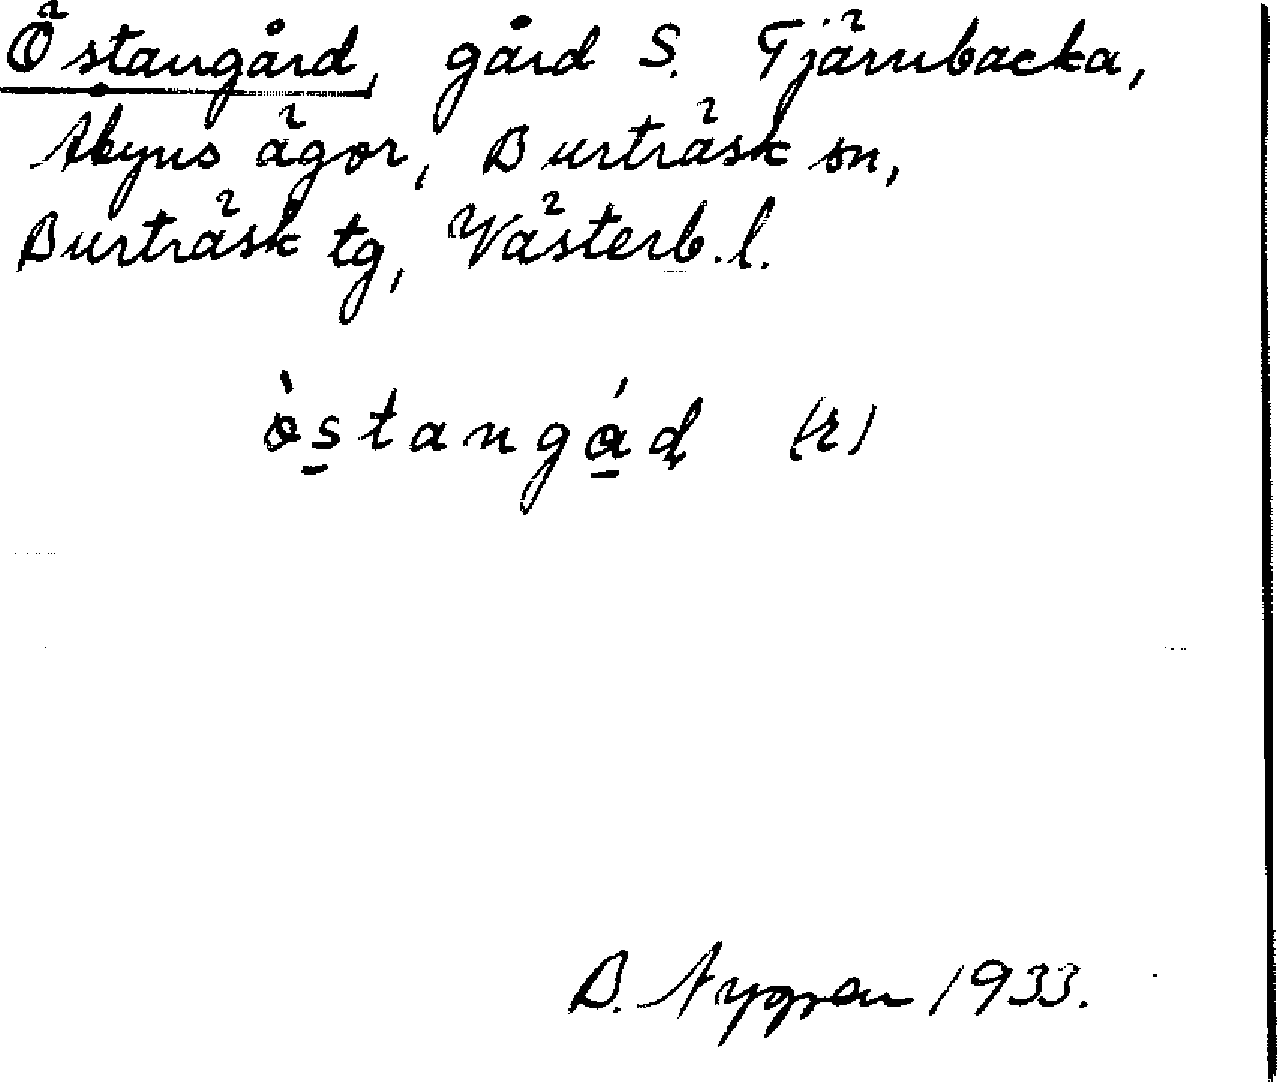 Östangård, gård S. Tjärnbacka,
Åbyns ägor, Burträsk sn,
Burträsk tg, Västerb. l.
ò̱s̱tangá̱ḍ (r)
B. Nygren 1933.